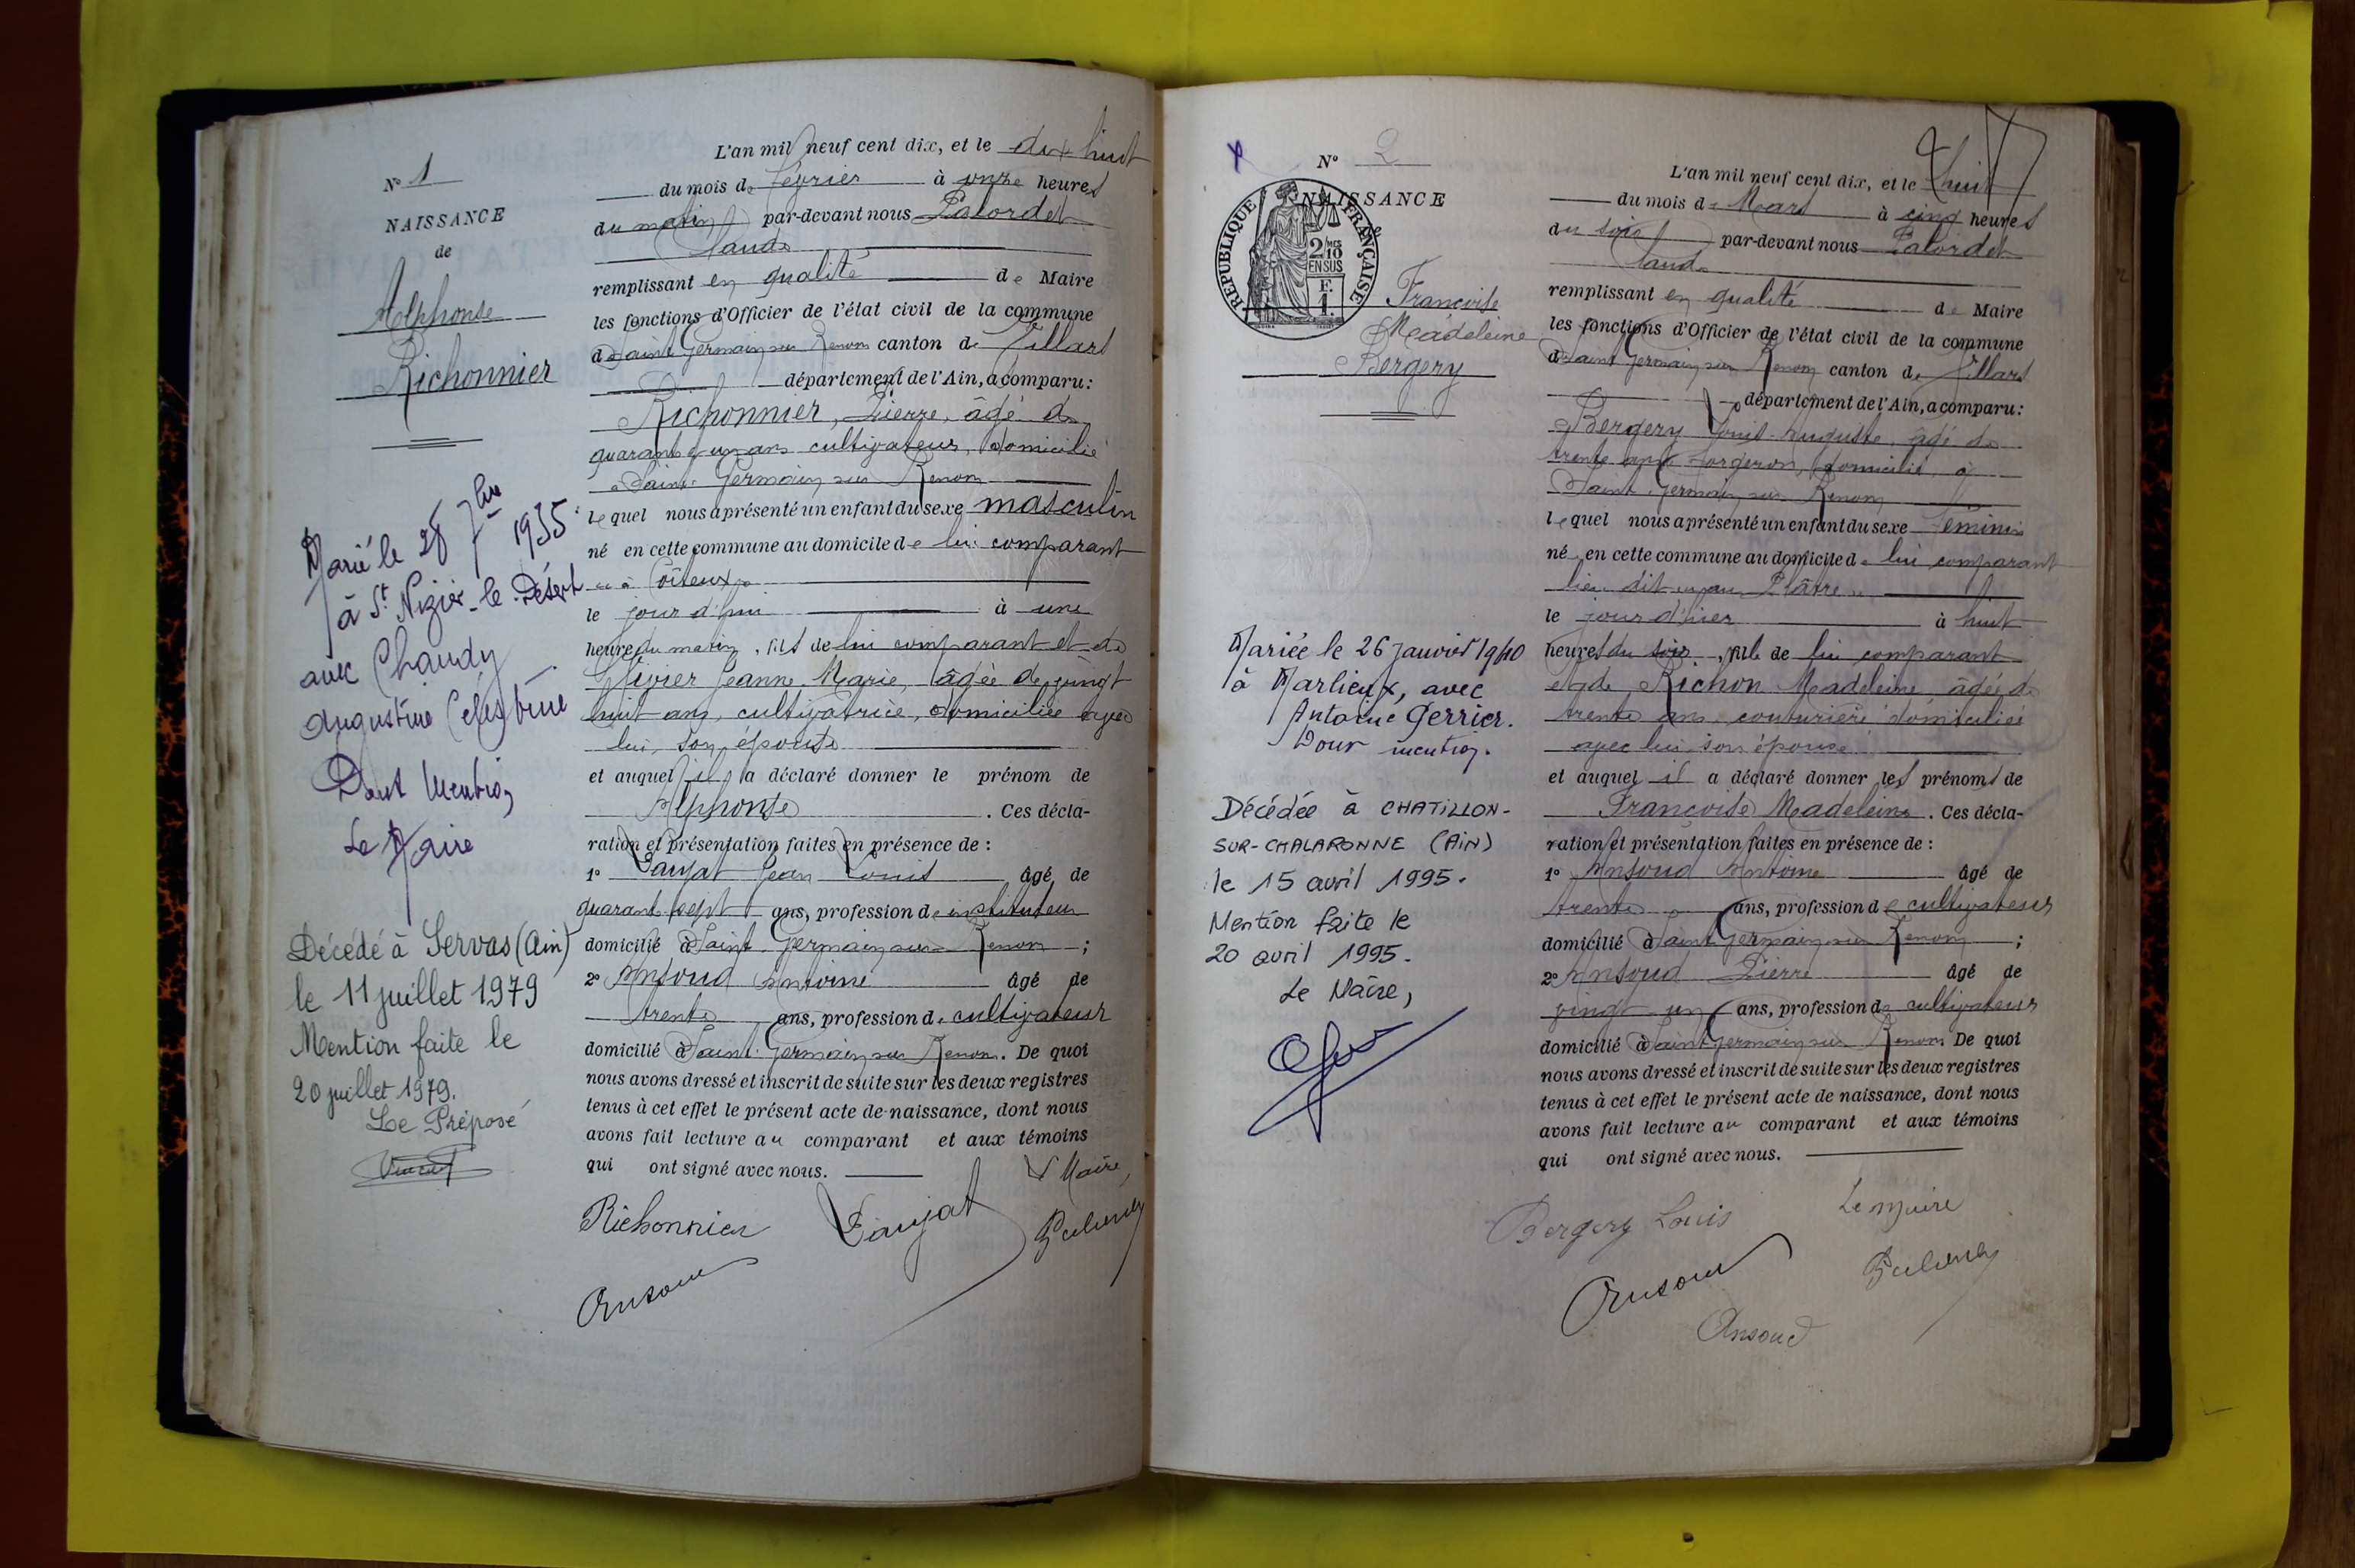 N° 1
NAISSANCE
de
Alphonse
Richonnier
Marié le 28 7bre 1935
à St Nizier-le-Désert
avec Chaudy
Augustine Célestine
Dont Mention
Le Maire
Décédé à Servas (Ain)
le 11 juillet 1979
Mention faite le
20 juillet 1979.
Le Préposé
L'an mil neuf cent dix, et le dix huit
du mois de février à onze heures
du matin par-devant nous Palordet
Claude
remplissant en qualité de Maire
les fonctions d'Officier de l'état civil de la commune
de Saint Germain sur Renom canton de Villars
département de l'Ain, a comparu:
Richonnier, Pierre, âgé de
quarante un ans cultivateur, domicilié
à Saint Germain sur Renom
lequel nous a présenté un enfant du sexe masculin
né en cette commune au domicile de lui comparant
le jour d'hui à une
heure du matin, fils de lui comparant et de
Jeanne Marie, âgée de vingt
huit ans, cultivatrice, domiciliée avec
lui, son épouse
et auquel il a déclaré donner le prénom de
Alphonse. Ces décla-
ration et présentation faites en présence de :
1° Laujat Jean Louis âgé de
quarante sept ans, profession de instituteur
domicilié à Saint Germain sur Renom ;
2° Ansoud Antoine âgé de
trente ans, profession de cultivateur
domicilié à Saint Germain sur Renom. De quoi
nous avons dressé et inscrit de suite sur les deux registres
tenus à cet effet le présent acte de naissance, dont nous
avons fait lecture au comparant et aux témoins
qui ont signé avec nous.
Le Maire,
Richonnier Laujat
Ansoud
N° 2
NAISSANCE
RÉPUBLIQUE FRANÇAISE
2/10
EN SUS
F.
1.
Françoise
Madeleine
Bergery
Mariée le 26 janvier 1940
à Marlieux, avec
Antoine Perrier.
Pour mention.
Décédée à CHATILLON-
SUR-CHALARONNE (AIN)
le 15 avril 1995.
Mention faite le
20 avril 1995.
Le Maire,
L'an mil neuf cent dix, et le huit
du mois de Mars à cinq heures
du soir par-devant nous Palordet
Claude
remplissant en qualité de Maire
les fonctions d'Officier de l'état civil de la commune
de Saint Germain sur Renom canton de Villars
département de l'Ain, a comparu:
Bergery Louis Auguste, âgé de
trente ans forgeron, domicilié à
Saint Germain sur Renom
lequel nous a présenté un enfant du sexe féminin
né en cette commune au domicile de lui comparant
lieu dit "au Plâtre"
le jour d'hier à huit
heures du soir, fille de lui comparant
et de Richon Madeleine âgée de
trente ans couturière domiciliée
avec lui son épouse
et auquel il a déclaré donner les prénoms de
Françoise Madeleine. Ces décla-
ration et présentation faites en présence de :
1° Ansoud Antoine âgé de
trente ans, profession de cultivateur
domicilié à Saint Germain sur Renom ;
2° Ansoud Pierre âgé de
vingt un ans, profession de cultivateur
domicilié à Saint Germain sur Renom De quoi
nous avons dressé et inscrit de suite sur les deux registres
tenus à cet effet le présent acte de naissance, dont nous
avons fait lecture au comparant et aux témoins
qui ont signé avec nous.
Bergery Louis Le maire
Ansoud
Ansoud